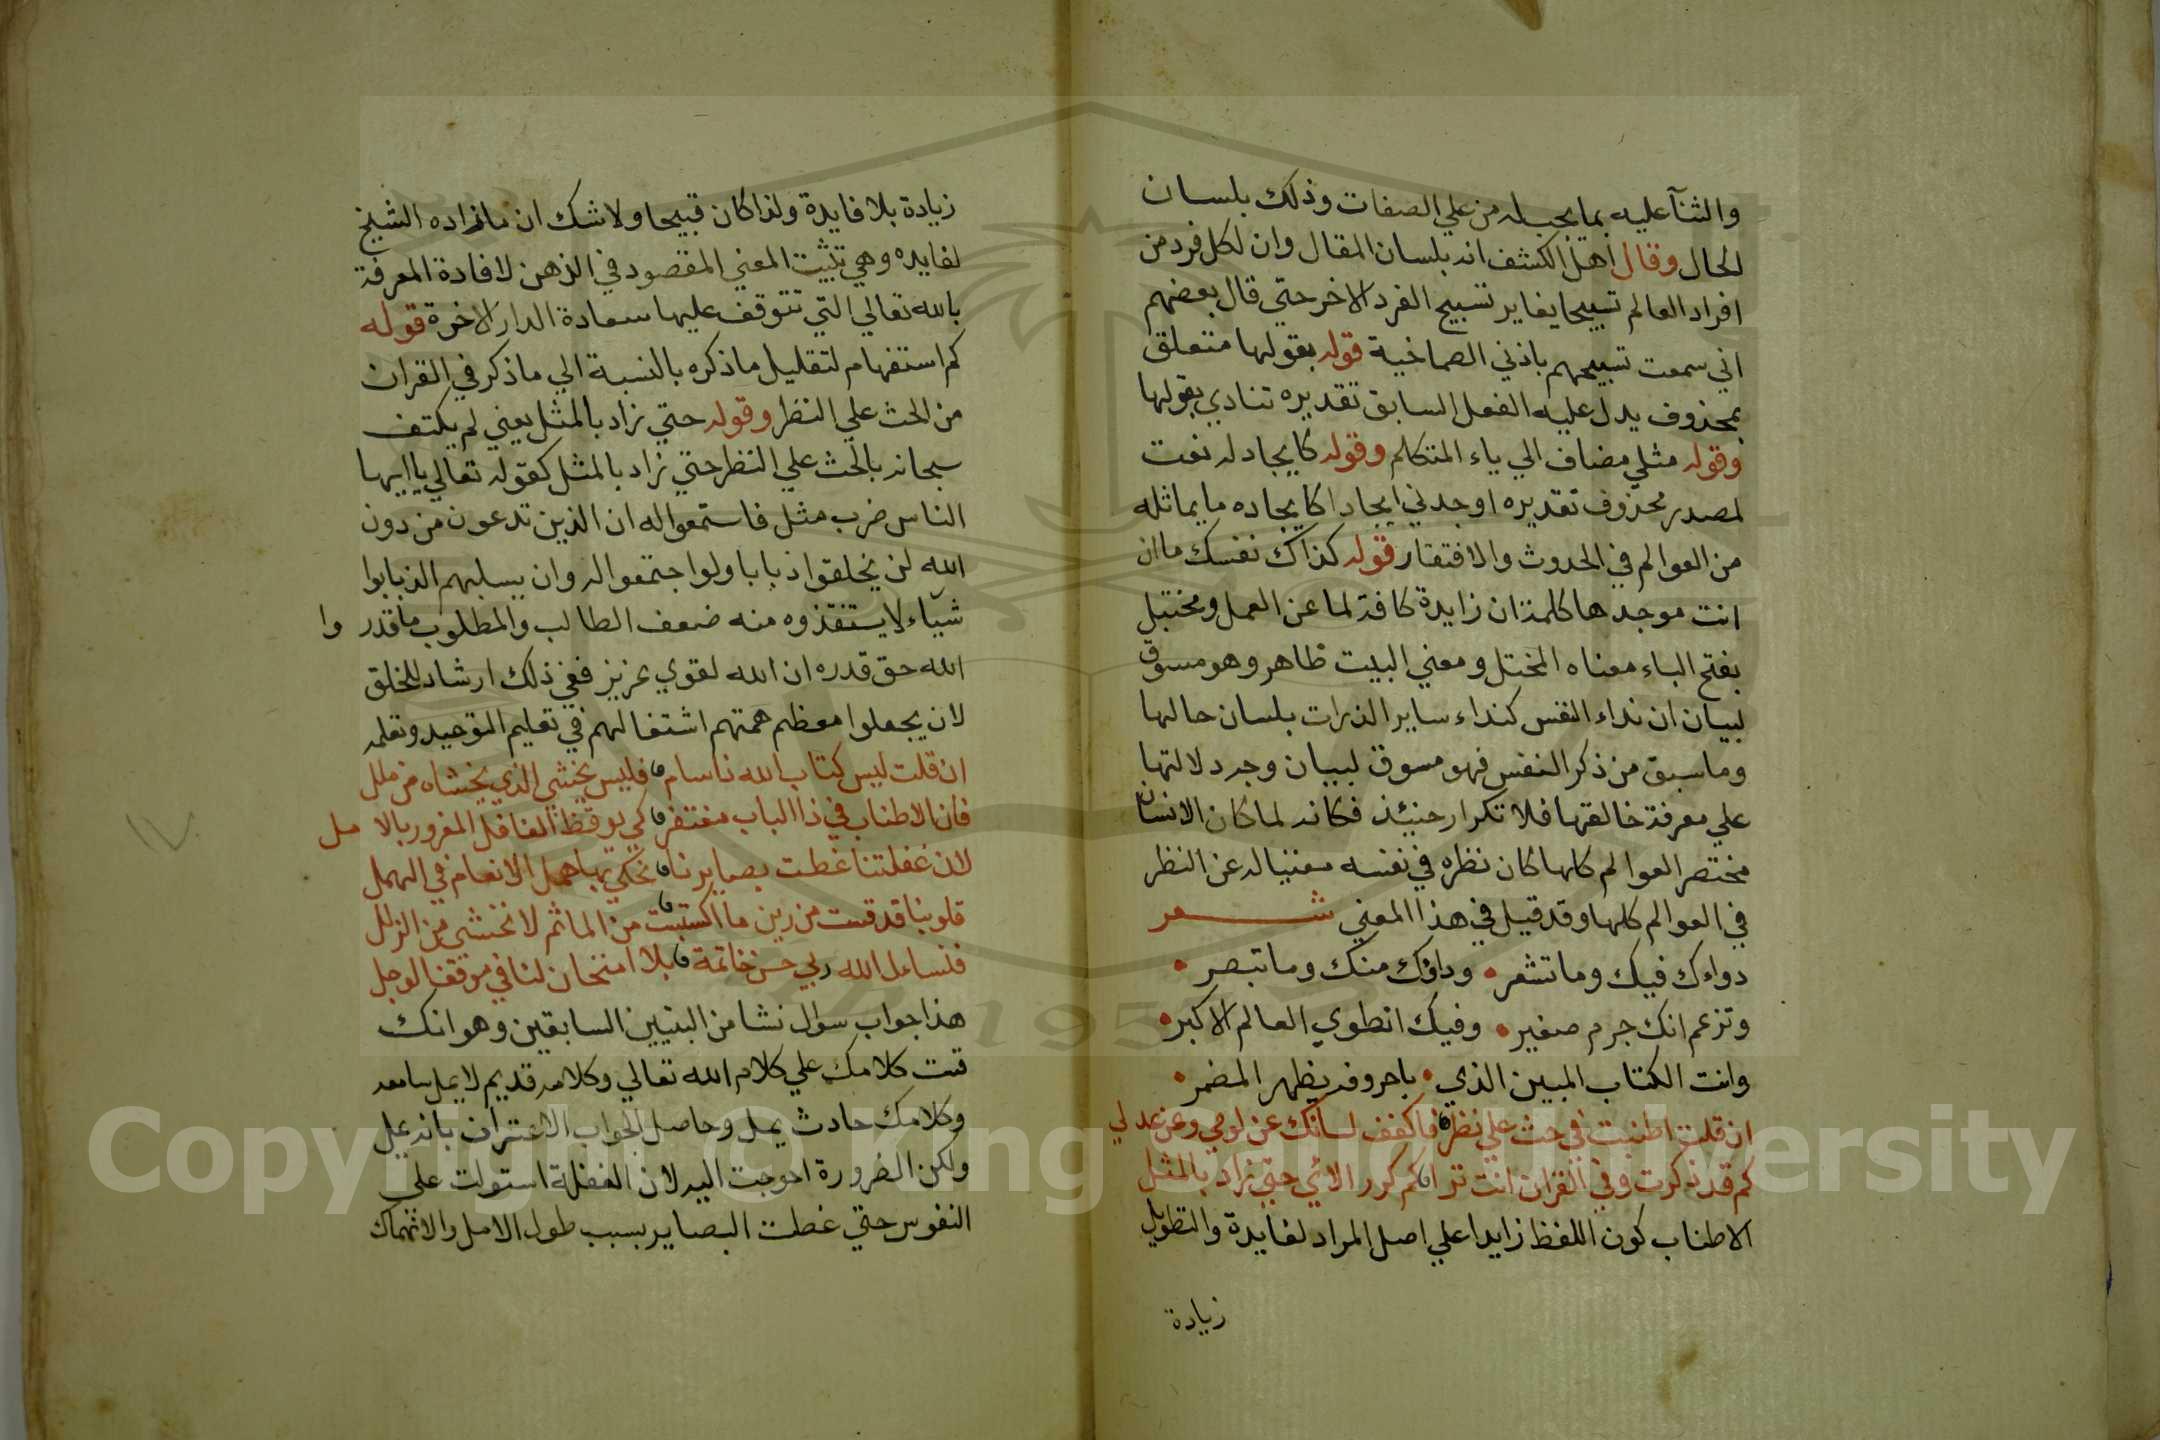 والثنآ عليه بما يجب له من علي الصفات وذلك بلسان
الحال وقال اهل الكشف انه بلسان المقال وان لكل فرد من
افراد العالم تسبيحا يغاير تسبيح الفرد الاخر حتي قال بعضهم
اني سمعت تسبيحهم باذني الصماخية قوله بقولها متعلق
بمحذوف يدل عليه الفعل السابق تقديره تنادي بقولها
وقوله مثلي مضاف الي ياء المتكلم وقوله كايجاد له نعت
لمصدر محذوف تقديره اوجدني ايجادا كايجاده ما يماثله
من العوالم في الحدوث والافتقار قوله كذاك نفسك ما ان
انت موجدها كلمة ان زايدة كافة لما عن العمل ومختبل
بفتح الباء معناه المختل ومعني البيت ظاهر وهو مسوق
لبيان ان نداء النفس كنداء ساير الذرات بلسان حالها
وما سبق من ذكر النفس فهو مسوق لبيان وجه دلالتها
علي معرفة خالقها فلا تكرار حنيئذ فكانه لما كان الانسان
مختصر العوالم كلها كان نظره في نفسه مغنيا له عن النظر
في العوالم كلها وقد قيل في هذا المعني شعر
دواءك فيك وما تشعر • وداؤك منك وما تبصر •
وتزعم انك جرم صغير • وفيك انطوي العالم الاكبر •
وانت الكتاب المبين الذي • باحرفه يظهر المضمر •
ان قلت اطنبت في حث علي نظر فاكفف لسانك عن لومي وعن عدلي
كم قد ذكرت وفي القران انت ترا كم كرر الائي حتي زاد بالمثل
الاطناب كون اللفظ زايدا علي اصل المراد لفايدة والتطويل
زيادة
زيادة بلا فايدة ولذا كان قبيحا ولا شك ان ما زاده الشيخ
لفايده وهي تثبيت المعني المقصود في الذهن لافادة المعرفة
بالله تعالي التي تتوقف عليها سعادة الدار الاخرة قوله
كم استفهام لتقليل ما ذكره بالنسبة الي ما ذكر في القران
من الحث علي النظر وقوله حتي زاد بالمثل يعني لم يكتف
سبحانه بالحث علي النظر حتي زاد بالمثل كقوله تعالي يا ايها
الناس ضرب مثل فاستمعوا له ان الذين تدعون من دون
الله لن يخلقوا ذبابا ولو اجتمعوا له وان يسلبهم الذبابوا
شياء لا يستنقذوه منه ضعف الطالب والمطلوب ما قدر وا
الله حق قدره ان الله لقوي عزيز ففي ذلك ارشاد للخلق
لان يجعلوا معظم همتهم اشتغالهم في تعليم التوحيد وتعلمه
ان قلت ليس كتاب الله ذا سام فليس يخشي الذي يخشاه من ملل
فان الاطناب في ذا الباب مغتفر كي يوقظ الغافل المغرور بالا مل
لان غفلتنا غطت بصايرنا نحكي بها همل الانعام في الهمل
قلوبنا قد قست من رين ما اكتسبت من الماثم لا نخشي من الزلل
فنساءل الله ربي حسن خاتمة بلا امتحان لنا في موقف الوجل
هذا جواب سوال نشا من البيتين السابقين وهو انك
قست كلامك علي كلام الله تعالي وكلامه قديم لا يمل سامعه
وكلامك حادث يمل وحاصل الجواب الاعتراف بانه يمل
ولكن الضرورة احوجت اليه لان الغفلة استولت علي
النفوس حتي غطت البصاير بسبب طول الامل والانهماك
Copyright © King Saud University
1957